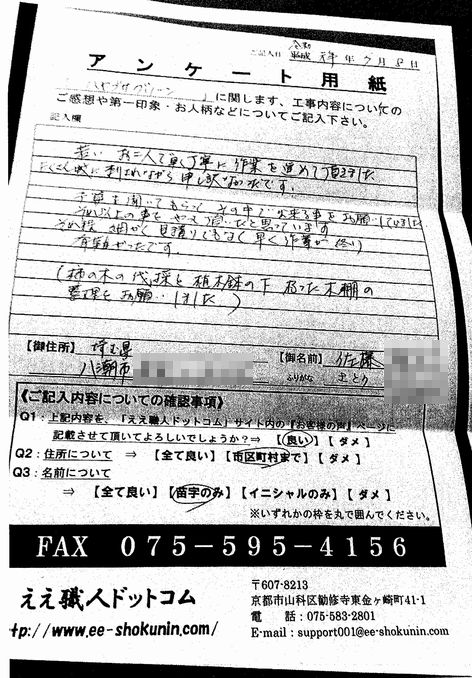 ご記入日 令和 平成 元年 7月 8日
アンケート用紙
」に関します、工事内容についての
ご感想や第一印象・お人柄などについてご記入下さい。
記入欄
若い お二人で 丁寧に 作業を 進めて 頂きました
たくさん 蚊に 刺されながら 申し訳なかったです。
予算を聞いてもらって その中で 出来る事を お願いしていました
それ以上の事を やって 頂いたと思っています
早く 作業が 終り
有難かったです。
(柿の木の伐採と植木鉢の下 木棚の
整理をお願いしました)
【御住所】 埼玉県
八潮市
【御名前】 佐藤
ふりがな さとう
《ご記入内容についての確認事項》
Q1:上記内容を、「ええ職人ドットコム」サイト内の『お客様の声』ページに
記載させて頂いてよろしいでしょうか?⇒ 【良い】【ダメ】
Q2:住所について ⇒ 【全て良い】【市区町村まで】【ダメ】
Q3:名前について
⇒ 【全て良い】【苗字のみ】【イニシャルのみ】【ダメ】
※いずれかの枠を丸で囲んでください。
FAX 075-595-4156
ええ職人ドットコム
tp://www.ee-shokunin.com/
〒607-8213
京都市山科区勧修寺東金ヶ崎町41-1
電 話 : 075-583-2801
E-mail : support001@ee-shokunin.com